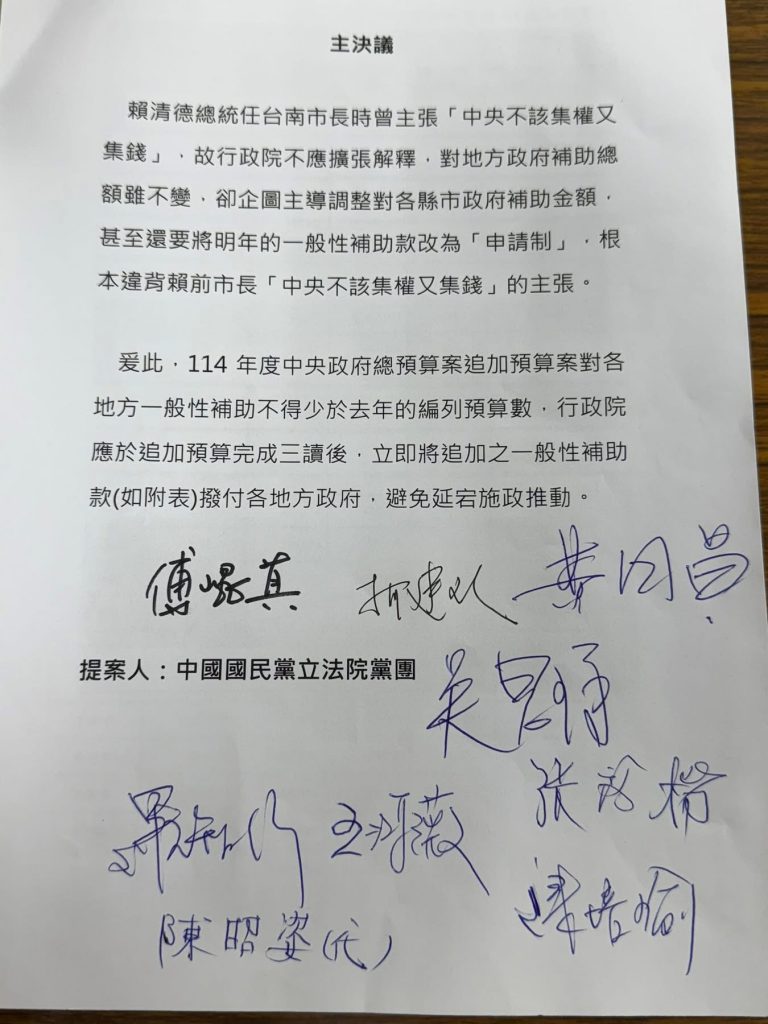 主決議
賴清德總統任台南市長時曾主張「中央不該集權又
集錢」，故行政院不應擴張解釋，對地方政府補助總
額雖不變，卻企圖主導調整對各縣市政府補助金額，
甚至還要將明年的一般性補助款改為「申請制」，根
本違背賴前市長「中央不該集權又集錢」的主張。
爰此，114 年度中央政府總預算案追加預算案對各
地方一般性補助不得少於去年的編列預算數，行政院
應於追加預算完成三讀後，立即將追加之一般性補助
款(如附表)撥付各地方政府，避免延宕施政推動。
傅崐萁
提案人：中國國民黨立法院黨團
王鴻薇
陳昭姿(代)